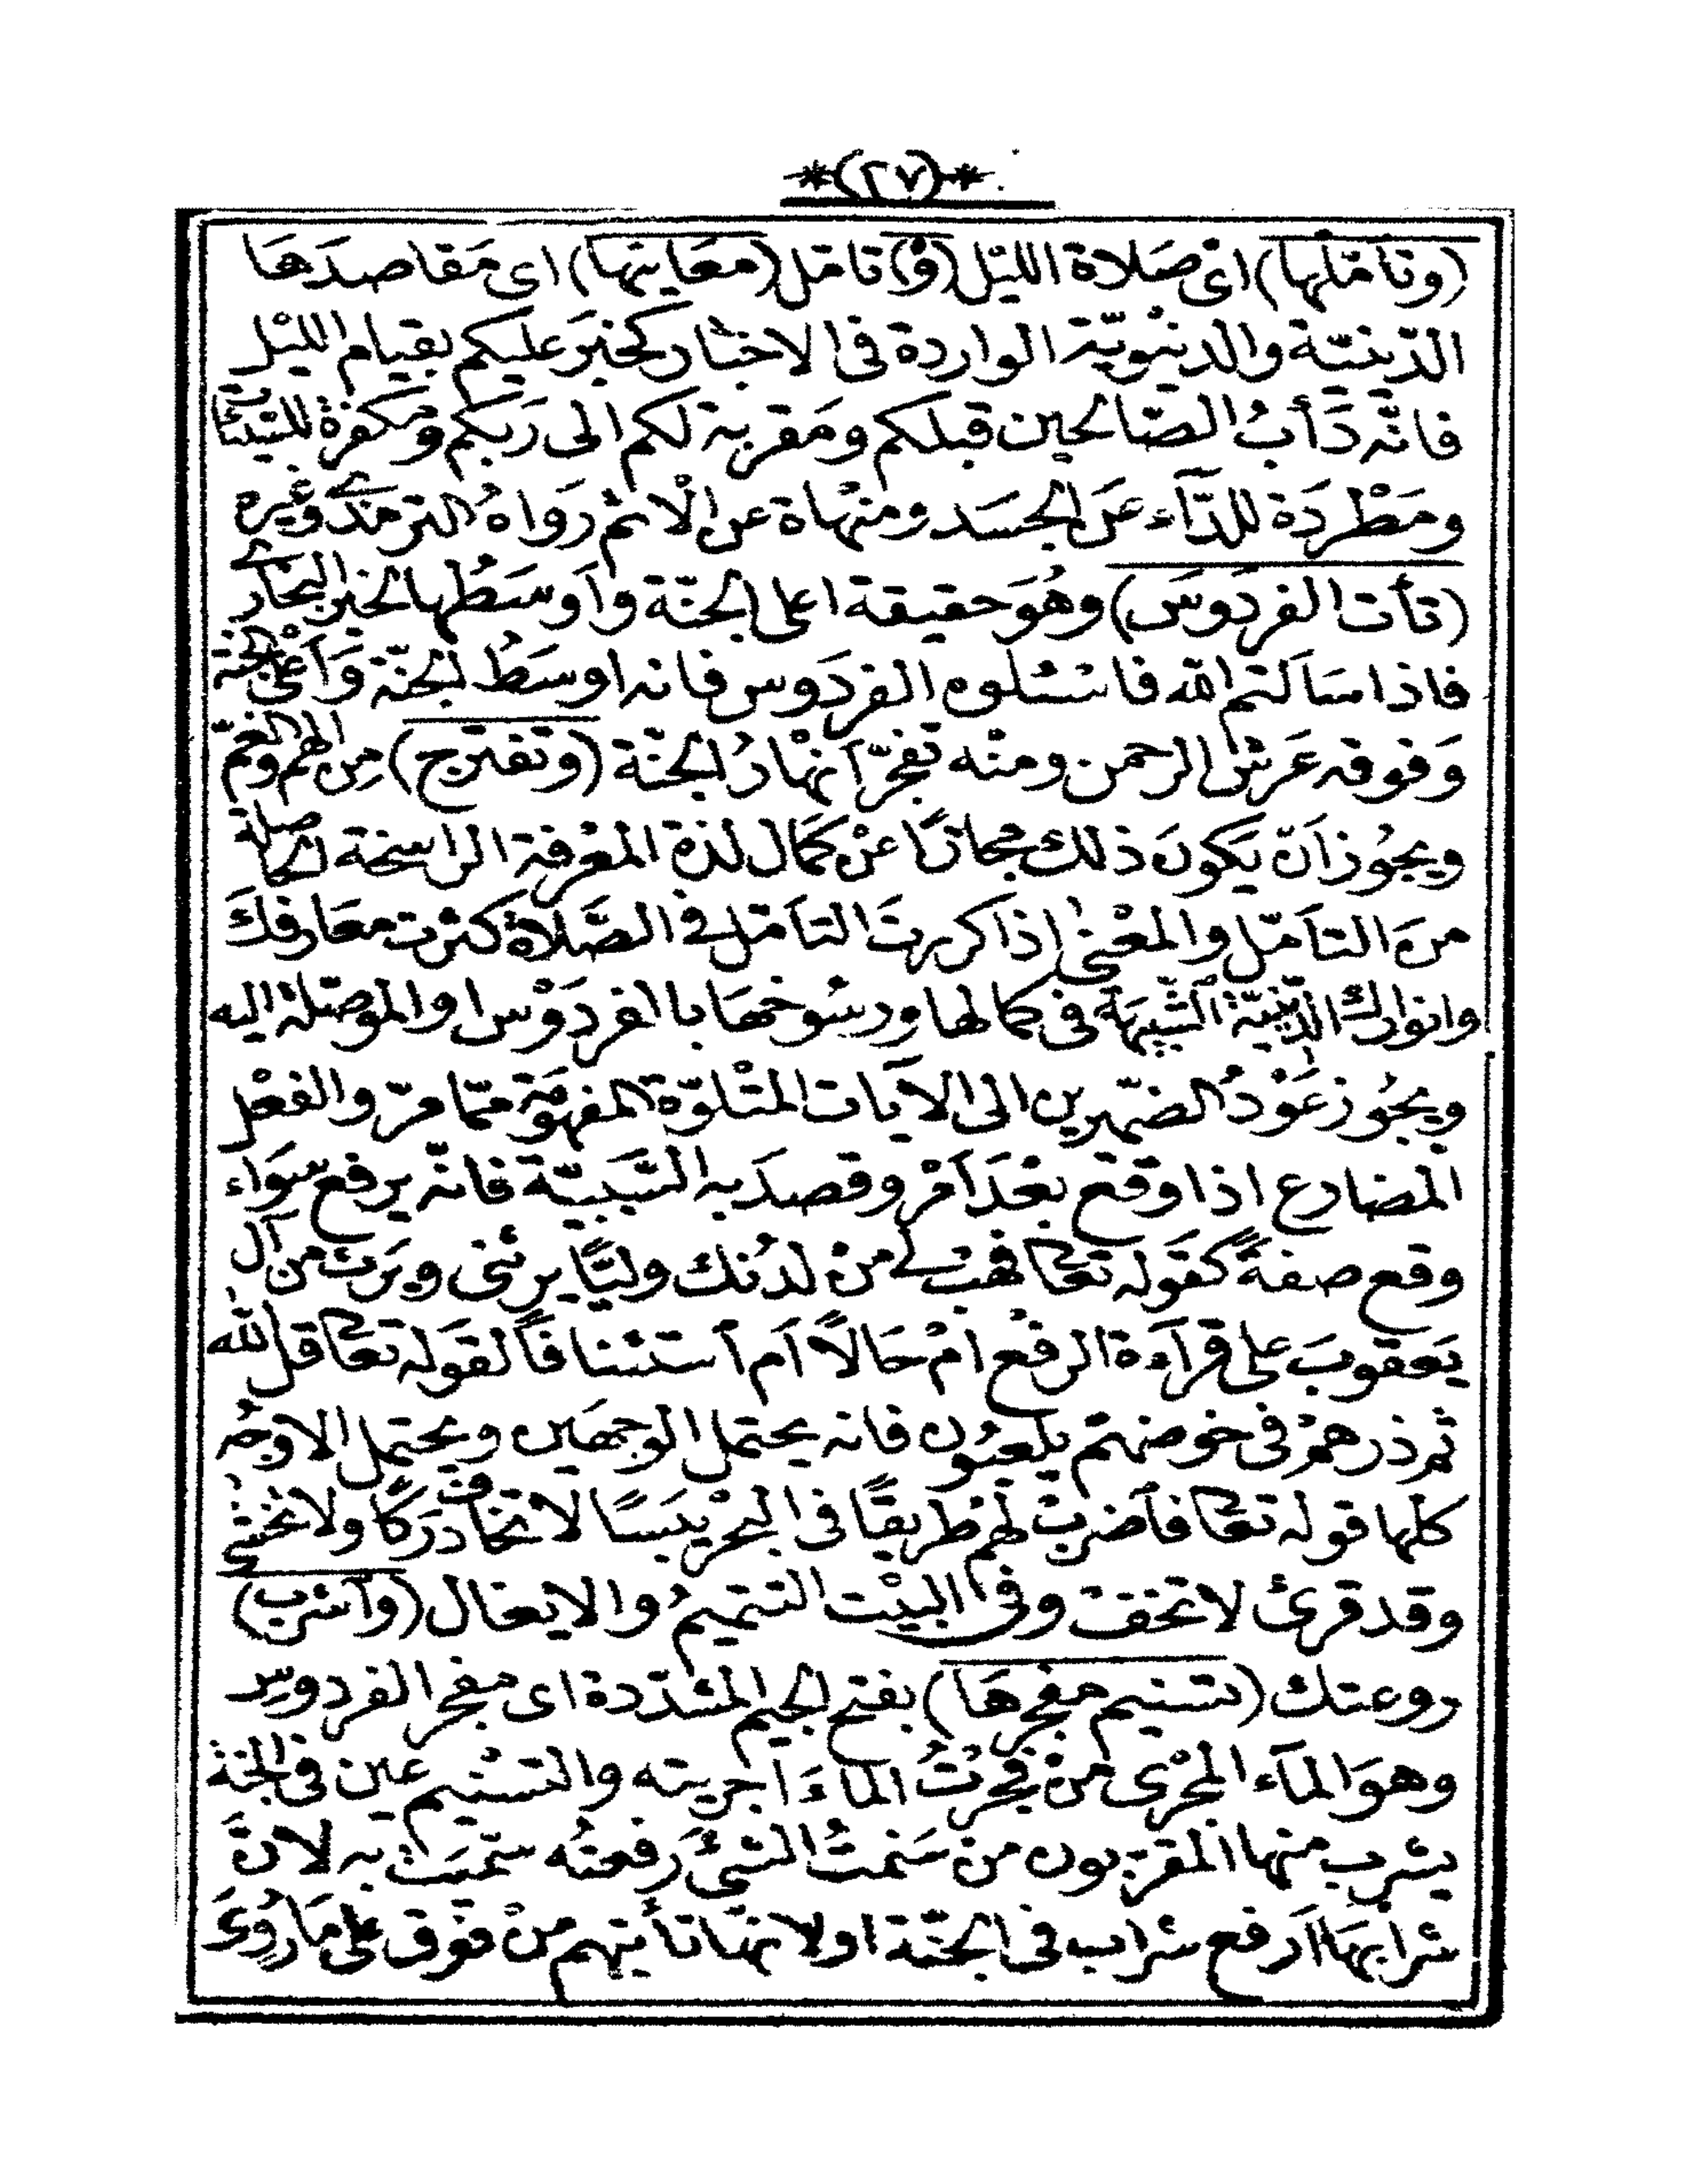 *(٢٧)*
(وتأمّلها) اى صَلاة الليْل (و) تامّل (معَانيها) اى مَقاصدَهَا
الدّينيّة والدنيْويّة الواردة فى الاخبَار كخبَر عليكم بقيام الليْل
فانّه دَأبُ الصّالحين قبلكم ومَقربة لكم الى رَبكم ومكفرة للسّيئات
ومَطْردَة للدّآء عَن الجسَد ومنْهاة عن الْاثم رَواهُ الترمذى وغيره
(تأت الفردَوسَ) وهُوَ حقيقة اعلى الجنّة وَاَوسَطُها لخبر البخارى
فاذا سَاَلتم الله فاسئلوه الفردَوس فانه اوسَطُ الجنّة وَاَعْلى الجنّة
وَفوقه عَرش الرحمن ومنْه تفجّر اَنهَارُ الجنّة (وتفترج) مِن الهم والغمّ
ويجُوز اَن يَكونَ ذلك مجازًا عنْ كمَال لذة المعْرفة الراسخة الحاصلة
منَ التاَمّل والمعْنى اِذا كررتَ التاَمّل فى الصَّلاة كثرت معَارفكَ
وانوارك الدّينيّة الشّبيهَة فى كمالها ورسُوخهَا بالفردَوْس او الموصّلة اليه
ويجُوز عَوْدُ الضمّيرين الى الآيات المتْلوّة المفهومَة ممّا مرّ والفعْل
المضارع اذا وقع بعْدَ اَمْر وقصدَ به السّبَبيّة فانّه يرفع سَوَاء
وقع صفةً كقَوله تعَالى فهَبْ لى منْ لدُنك وليًّا يرثنى ويَرث من آل
يَعقوبَ على قرآءة الرفع امْ حَالاً اَم اَستئنافاً لقوَله تعَالى قل الله
ثم ذرهمْ فى خوضهمْ يلعبُون فانه يحتمل الوجهَين ويحتمل الاوجُه
كلها قوله تعَالى فاَضربْ لهمْ طريقًا فى البحْر يبَسًا لا تخاف درَكًا ولا تخشى
وقد قرئ لا تخفْ وفى البيْت التتميمُ والايغال (واَشرب)
روعتك (تسْنيم مفجرهَا) بفتح الجيم المشدّدة اى مفجر الفردوس
وهوَ المآء المجْرى منْ فجرْتُ الماءَ اجريته والتسْنيم عين فى الجنة
يشرب منها المقرّبون منْ سَنمتُ الشىْءَ رَفعتُه سمّيَتْ به لانَّ
شرابهَا اَرفع شراب فى الجنّة او لانهّا تأتيهم منْ فوق على مَا رُوىَ